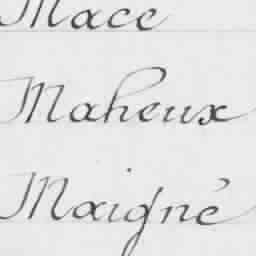 Macé
Maheux
Maigné